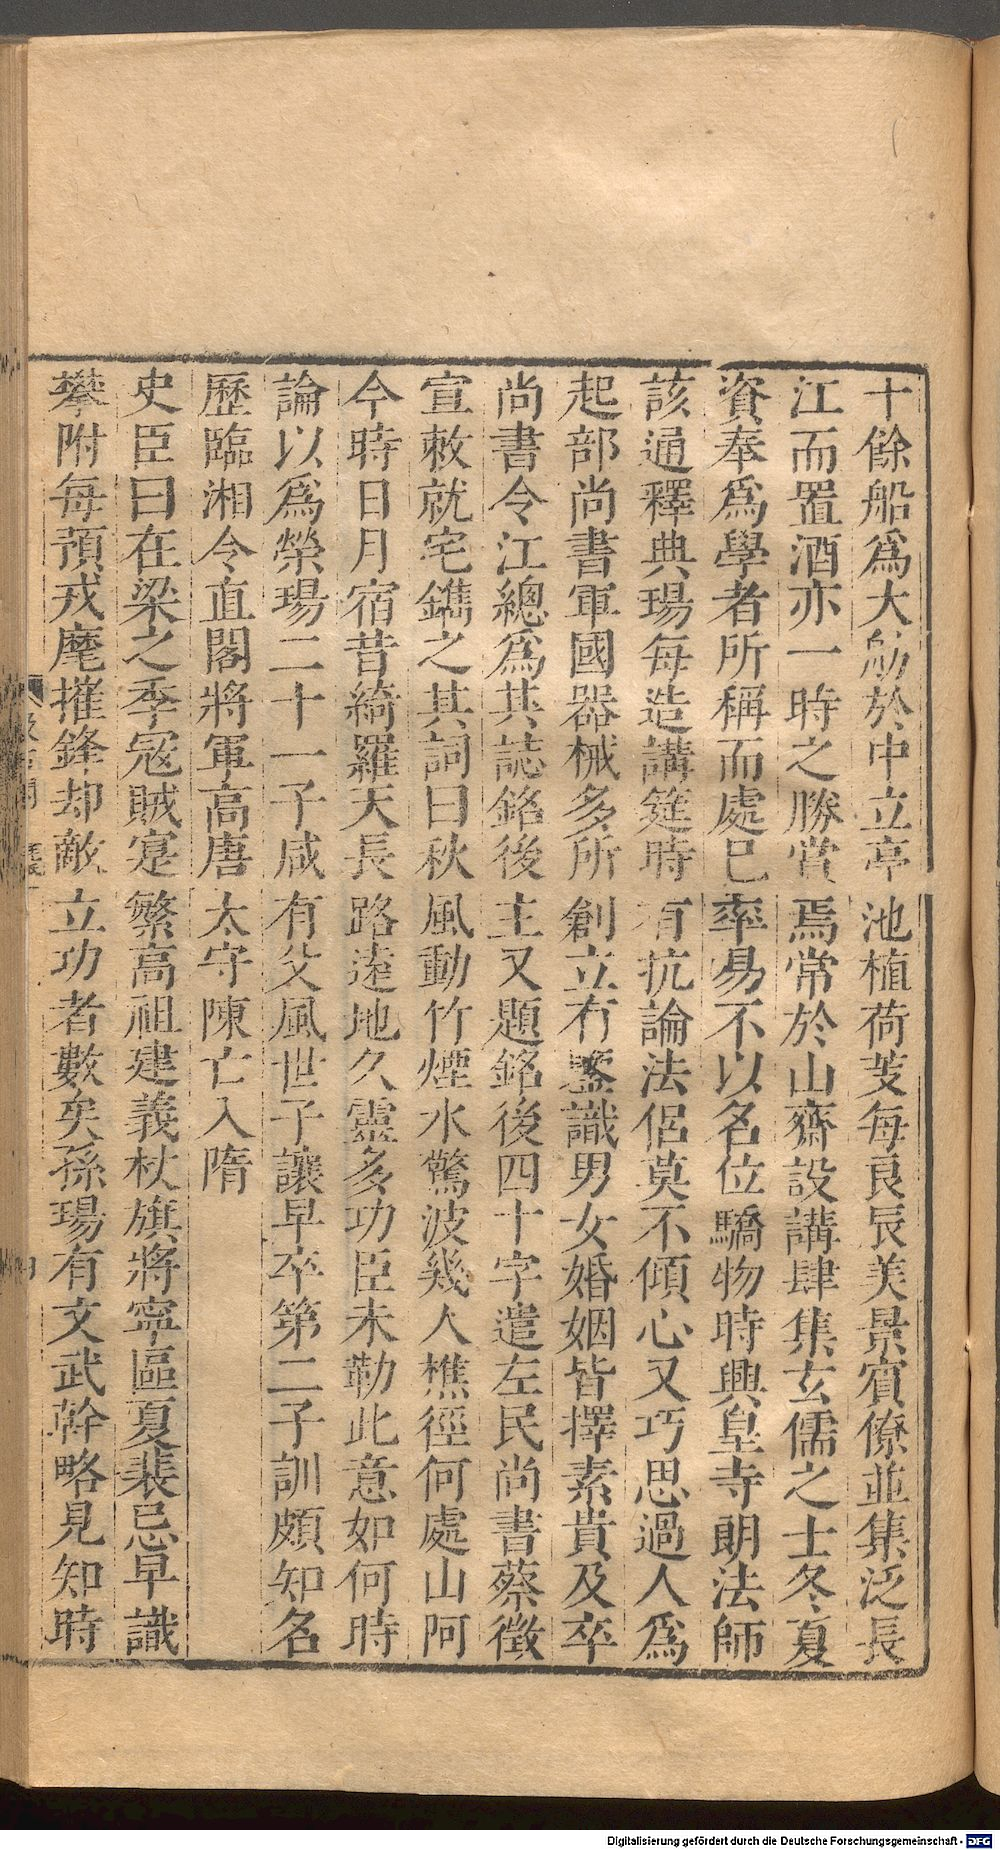 十餘船爲大舫於中立亭池植荷芰每良辰美景賓僚並集泛長
江而置酒亦一時之勝賞焉常於山齋設講肆集玄儒之士冬夏
資奉爲學者所稱而處已率易不以名位驕物時興皇寺朗法師
該通釋典瑒每造講筵時有抗論法侶莫不傾心又巧思過人爲
起部尚書軍國器械多所創立有鑒識男女婚姻皆擇素貴及卒
尚書令江總爲其誌銘後主又題銘後四十字遣左民尚書蔡徵
宣敕就宅鐫之其詞曰秋風動竹煙水驚波幾人樵徑何處山阿
今時日月宿昔綺羅天長路遠地久靈多功臣未勒此意如何時
論以爲榮瑒二十一子咸有父風世子讓早卒第二子訓頗知名
歷臨湘令直閣將軍高唐太守陳亡入隋
史臣曰在梁之季寇賊寔繁高祖建義杖旗將寧區夏裴忌早識
攀附每預戎麾摧鋒却敵立功者數矣孫瑒有文武幹略見知時
Digitalisierung gefördert durch die Deutsche Forschungsgemeinschaft - DFG